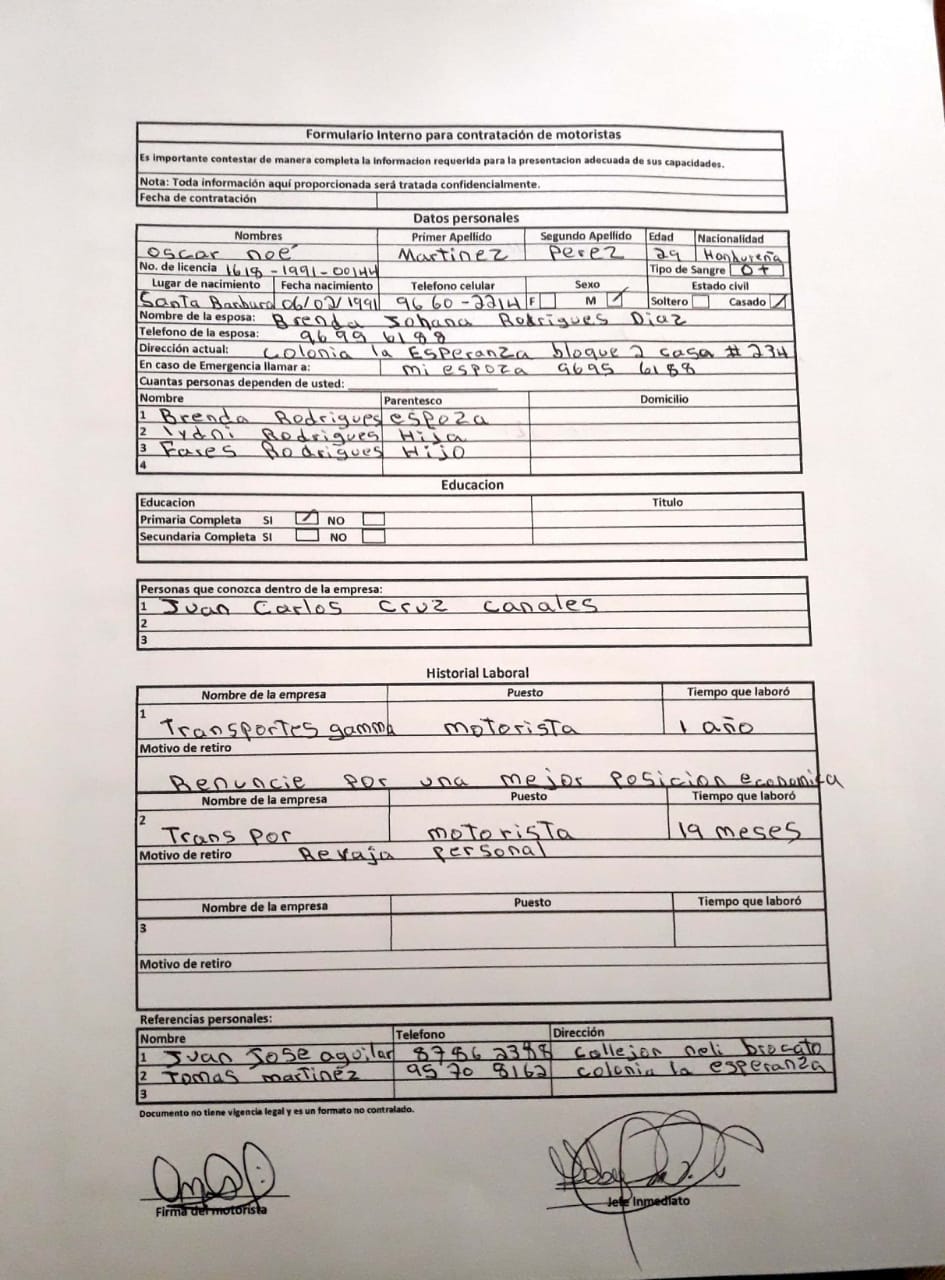 Formulario Interno para contratación de motoristas
Es importante contestar de manera completa la informacion requerida para la presentacion adecuada de sus capacidades.
Nota: Toda información aquí proporcionada será tratada confidencialmente.
Fecha de contratación
Datos personales
Nombres Primer Apellido Segundo Apellido Edad Nacionalidad
Oscar noé Martinez Perez 29 Hondureña
No. de licencia 1618-1991-00144 Tipo de Sangre O+
Lugar de nacimiento Fecha nacimiento Telefono celular Sexo Estado civil
Santa Barbara 06/02/1991 9660-2214 F M Soltero Casado
Nombre de la esposa: Brenda Johana Rodrigues Diaz
Telefono de la esposa: 9695 6188
Dirección actual: Colonia la Esperanza bloque 2 casa # 234
En caso de Emergencia llamar a: mi espoza 9695 6188
Cuantas personas dependen de usted:
Nombre Parentesco Domicilio
1 Brenda Rodrigues espoza
2 Rodrigues Hija
3 Rodrigues Hijo
4
Educacion
Educacion Titulo
Primaria Completa SI NO
Secundaria Completa SI NO
Personas que conozca dentro de la empresa:
1 Juan Carlos Cruz canales
2
3
Historial Laboral
Nombre de la empresa Puesto Tiempo que laboró
1 Transportes gamma motorista 1 año
Motivo de retiro
Renuncie por una mejor posicion economica
Nombre de la empresa Puesto Tiempo que laboró
2 Trans Por motorista 19 meses
Motivo de retiro Revaja personal
Nombre de la empresa Puesto Tiempo que laboró
3
Motivo de retiro
Referencias personales:
Nombre Telefono Dirección
1 Juan Jose aguilar 8786 2388 callejon neli brocato
2 Tomas martinez 9570 8162 colonia la esperanza
3
Documento no tiene vigencia legal y es un formato no contralado.
Firma del motorista Jefe Inmediato